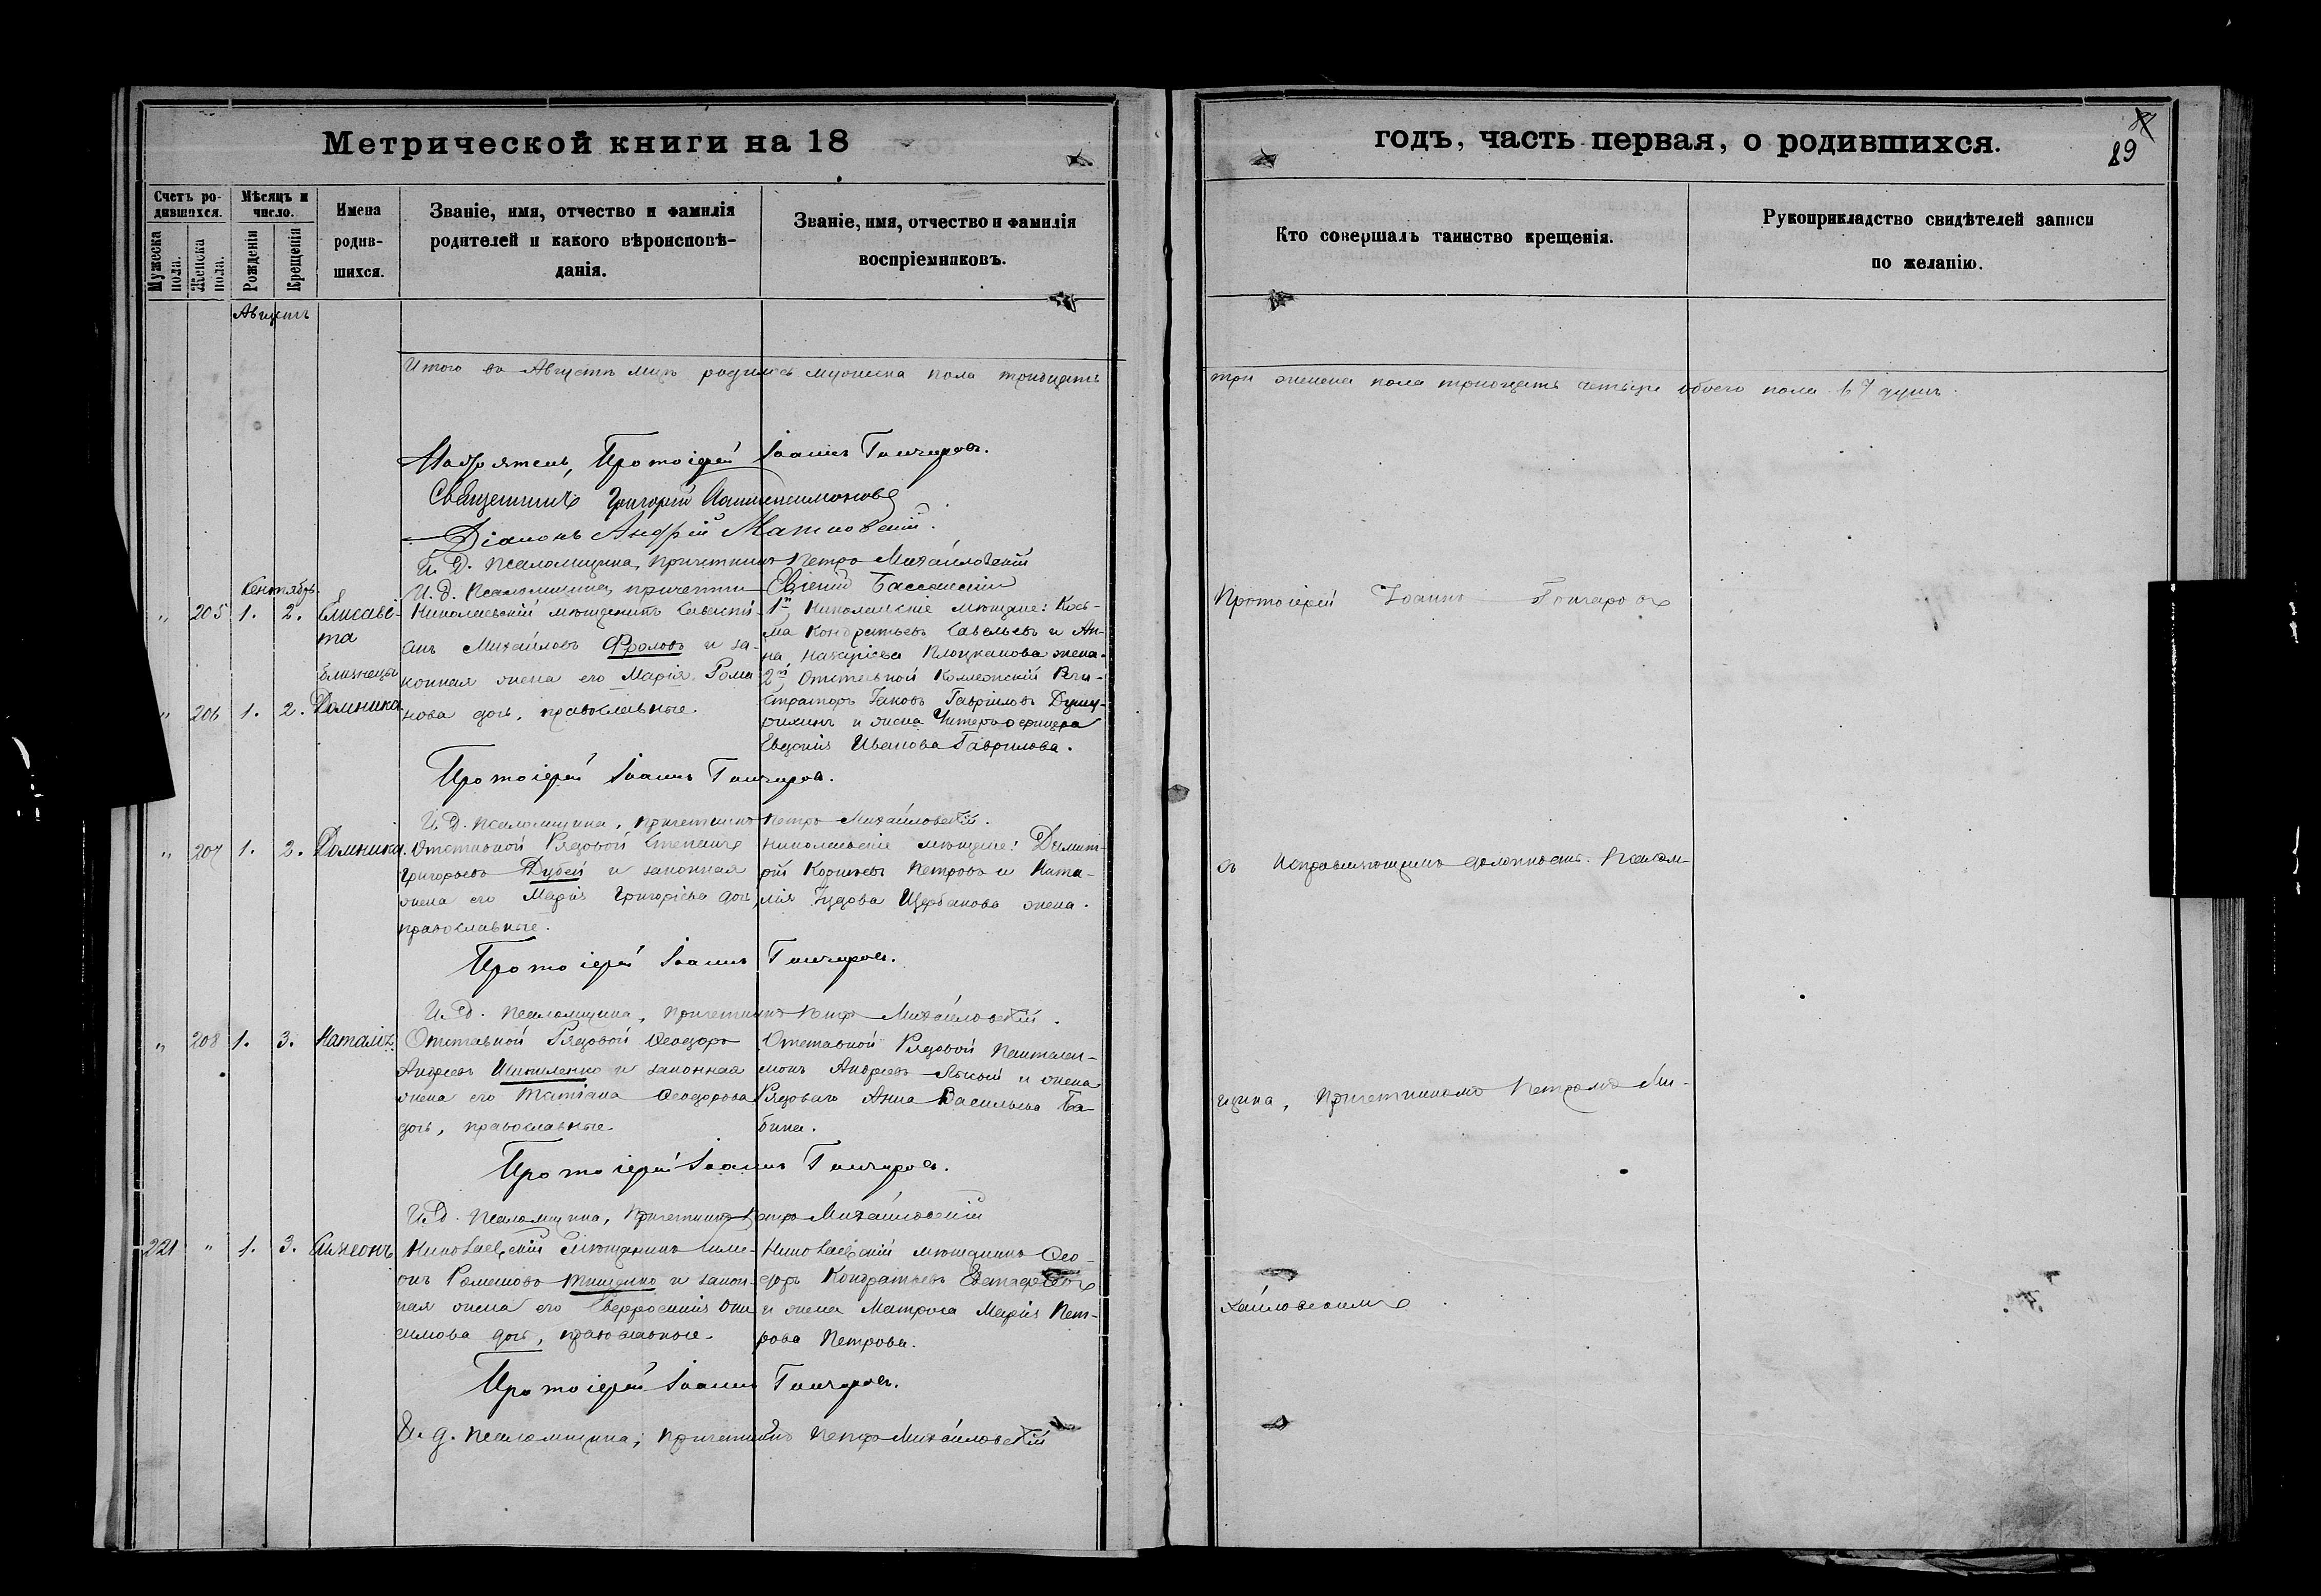 Метрической книги на 18
годъ, часть первая, о родившихся.
89
Счетъ родившихся.
Мужеска пола.
Женска пола.
Мѣсяцъ и число.
Рожденія
Крещенія
Имена родившихся.
Званіе, имя, отчество и фамилія
родителей и какого вѣроисповѣ-
данія.
Званіе, имя, отчество и фамилія
воспріемниковъ.
Кто совершалъ таинство крещенія.
Рукоприкладство свидѣтелей записи
по желанію.
Августъ
Итого въ Августѣ мцѣ родились мужеска пола тридцать
три женска пола тридцать четыре обоего пола 67 душъ.
Протоіерей Іоаннъ Гончаровъ.
Священникъ Григорій
Діаконъ Андрей
И. д. псаломщика, причетникъ Петръ Михайловскій
И. д. псаломщика, причетник
Сентябрь
" 205 1. 2. Елисаве-
та
Близнецы
" 206 1. 2. Домника
Николаевскій мѣщанинъ Севасті-
анъ Михайловъ Фроловъ и за-
конная жена его Марія Рома-
нова дочь, православные.
1е, Николаевскіе мѣщане: Кось-
ма Кондратьевъ Савельевъ и Ан-
на Назаріева Плоцканова жена.
2й Отставной Коллежскій Реги-
страторъ Іаковъ Гавріиловъ
и жена Унтеръ-офицера
Евдокія Иванова Гаврилова.
Протоіерей Іоаннъ Гончаровъ
Протоіерей Іоаннъ Гончаровъ.
И. д. псаломщика, причетникъ Петръ Михайловскій.
" 207 1. 2. Домника.
Отставной Рядовой Стефанъ
Григорьевъ Дубей и законная
жена его Марія Григоріева дочь,
православные.
Николаевскіе мѣщане: Димит-
рій Корнѣевъ Петровъ и Ната-
лія Щербакова жена.
съ исправляющимъ должность Псалом-
Протоіерей Іоаннъ Гончаровъ.
И. д. псаломщика, причетникъ Петръ Михайловскій.
" 208 1. 3. Наталія.
Отставной Рядовой Ѳеодоръ
Андреевъ и законная
жена его Татіана Ѳеодорова
дочь, православные.
Отставной Рядовой Пантелеи-
монъ Андреевъ и жена
Рядоваго Анна Васильева Ба-
бина.
щика, Причетникомъ Петромъ Ми-
Протоіерей Іоаннъ Гончаровъ.
И. д. псаломщика, причетникъ Петръ Михайловскій
221 " 1. 3. Симеонъ
Николаевскій мѣщанинъ Симе-
онъ Романовъ Тищенко и закон-
ная жена его Евфросинія Они-
симова дочь, православные.
Николаевскій мѣщанинъ Ѳео-
доръ Кондратьевъ Евстафіевъ
и жена Матроса Марія Пет-
рова Петрова.
хайловскимъ
Протоіерей Іоаннъ Гончаровъ.
И. д. псаломщика, причетникъ Петръ Михайловскій